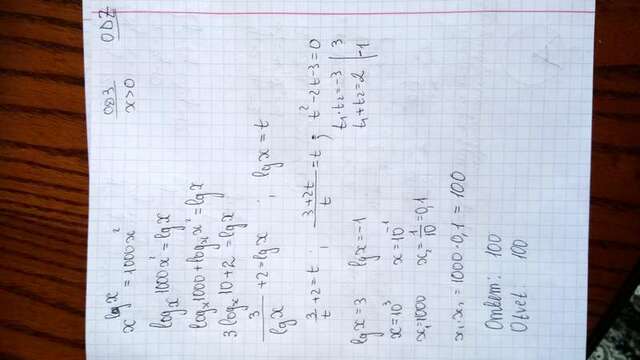 x^lg x = 1000x²
ОДЗ ODZ
x>0
log_x 1000x² = lg x
log_x 1000 + log_x x² = lg x
3 log_x 10 + 2 = lg x
3/lg x + 2 = lg x ; lg x = t
3/t + 2 = t ; (3+2t)/t = t ; t² - 2t - 3 = 0
t₁·t₂ = -3 | 3
t₁+t₂ = 2 | -1
lg x = 3 lg x = -1
x = 10³ x = 10⁻¹
x₁ = 1000 x₂ = 1/10 = 0,1
x₁·x₂ = 1000·0,1 = 100
Ответ: 100
Otvet: 100